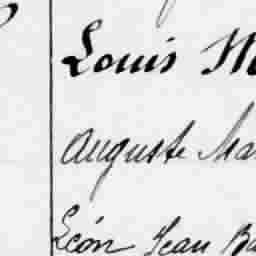 Louis M
Auguste Ma
Léon Jean Ba